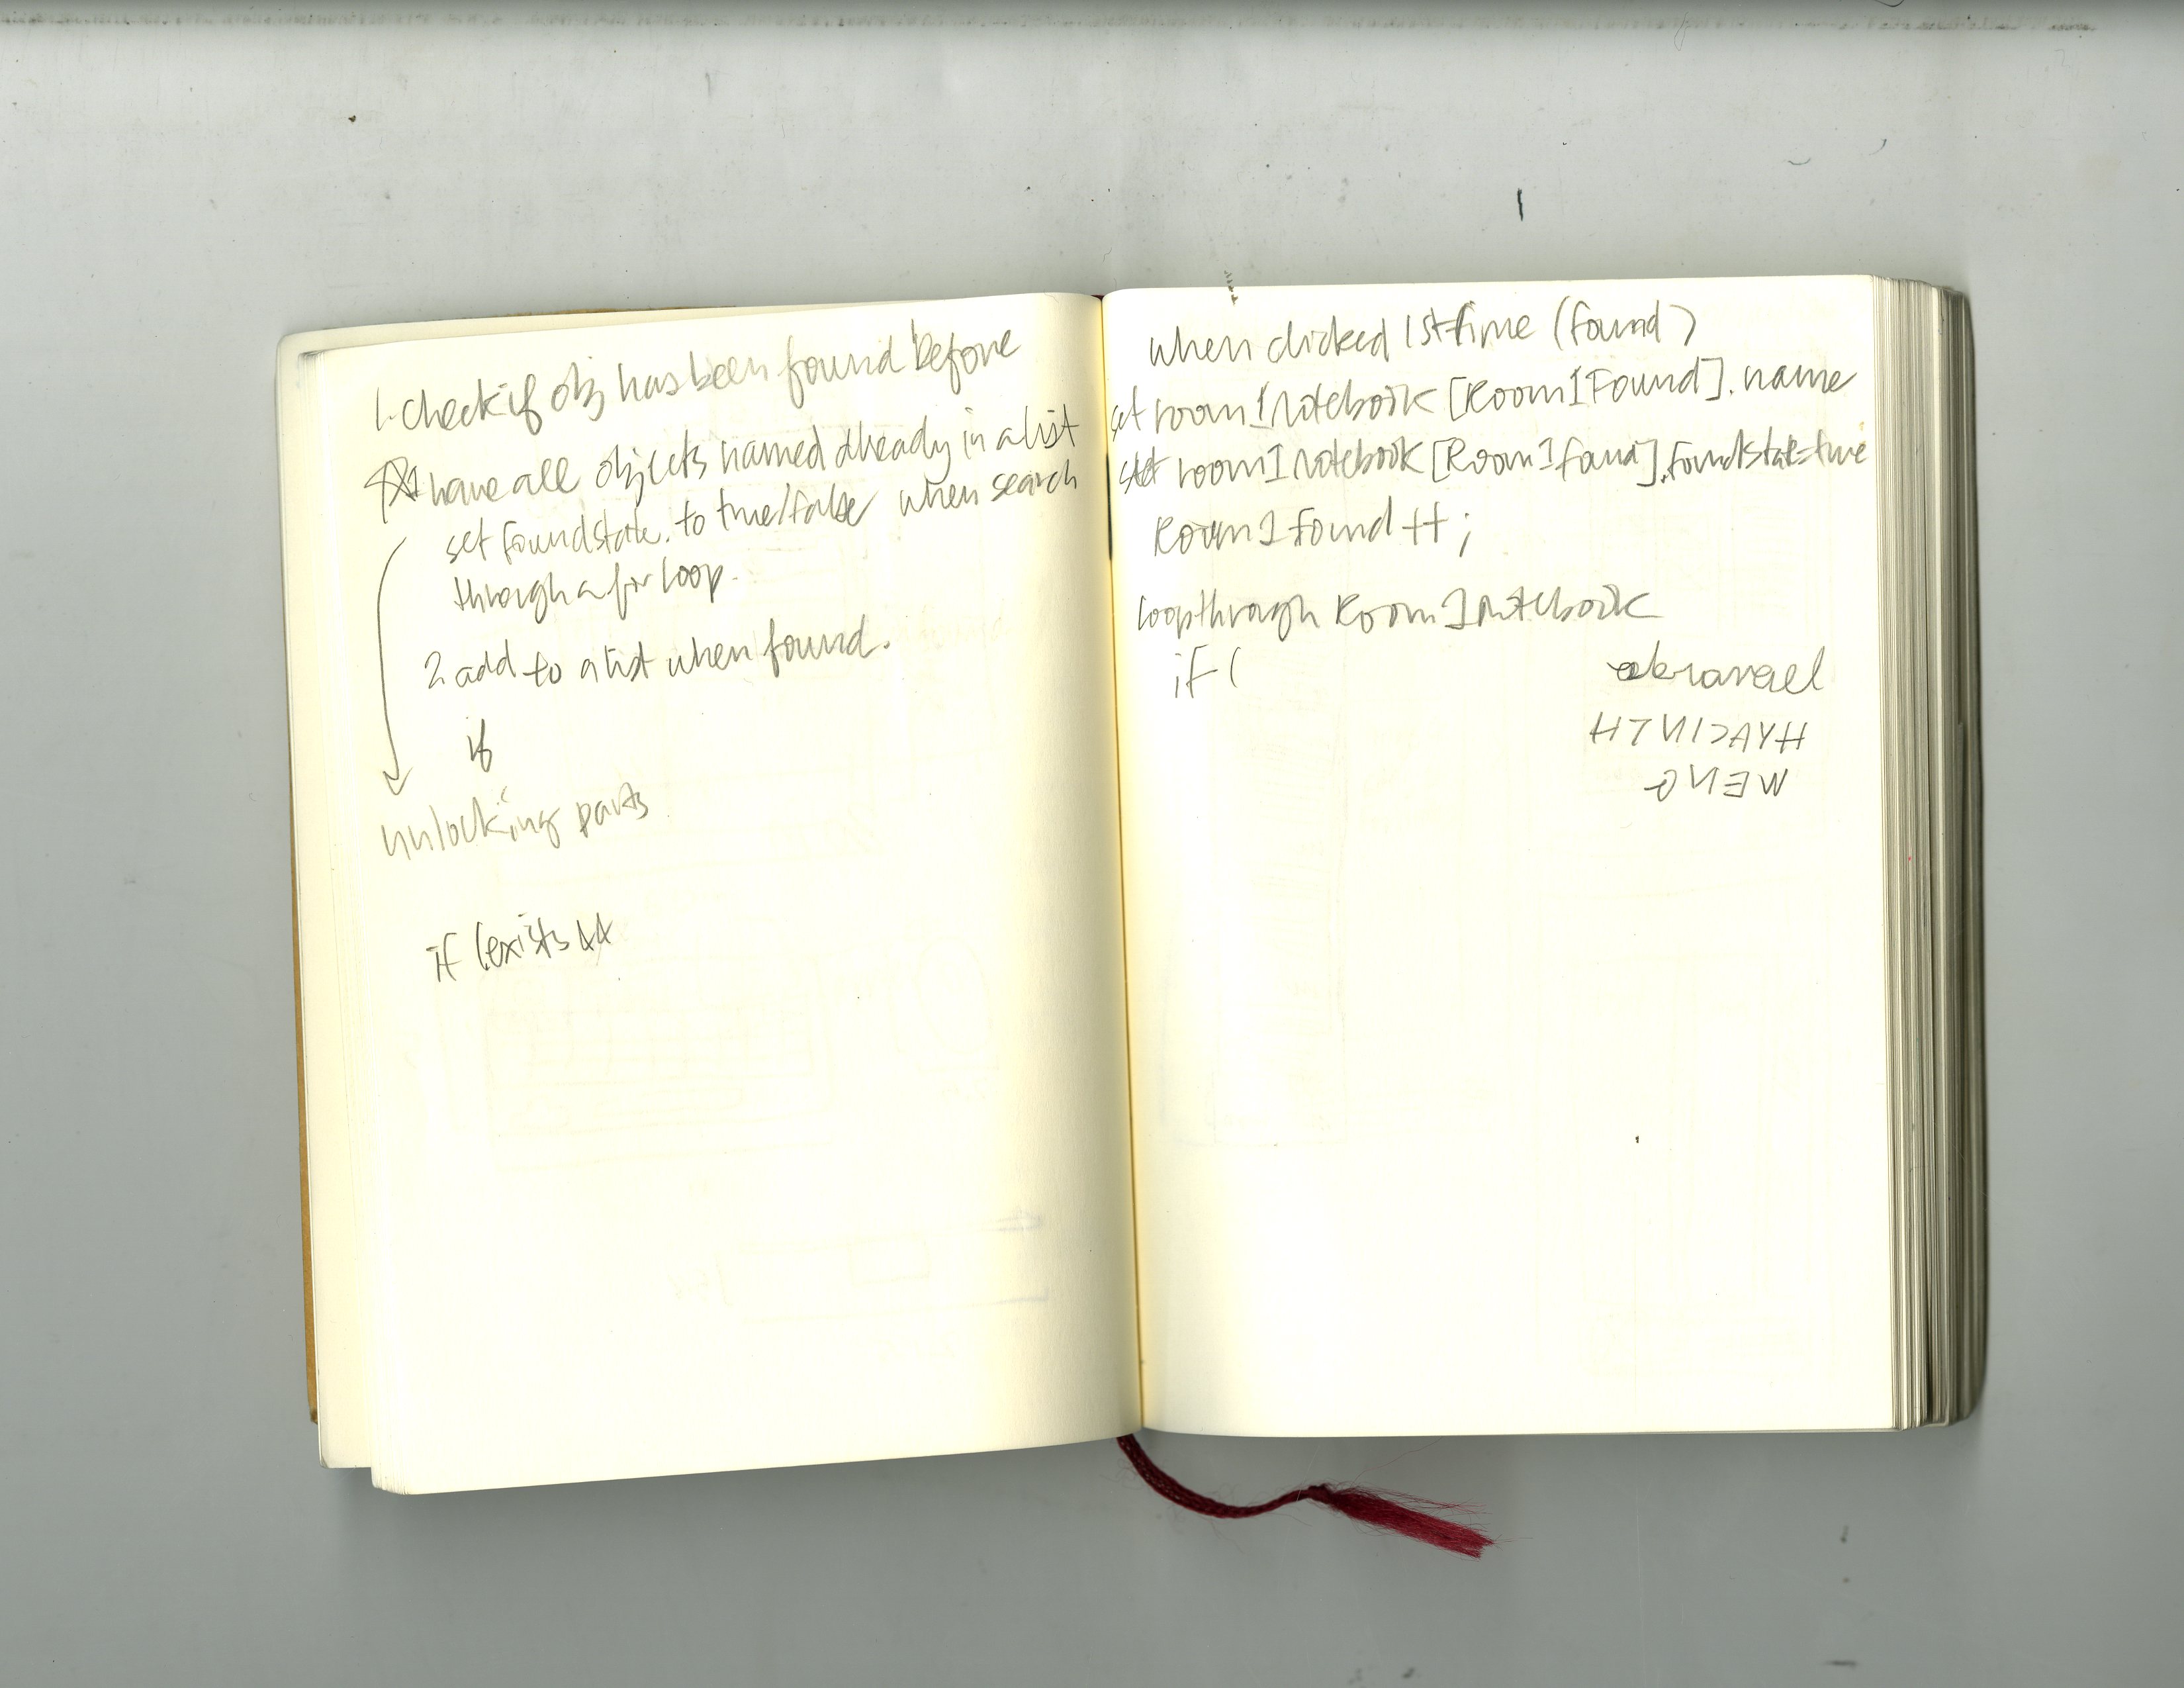 1. check if obj has been found before
have all objects named already in a list
set foundstate. to true/false when search
through a for loop.
2. add to a list when found.
if
unlocking parts
if (exists &&
when clicked 1st time (found)
set room1notebook [Room1Found]. name
set room1notebook [Room1found]. foundstate=true
Room1found ++;
loop through Room1notebook
if (
HYACINTH
MENO